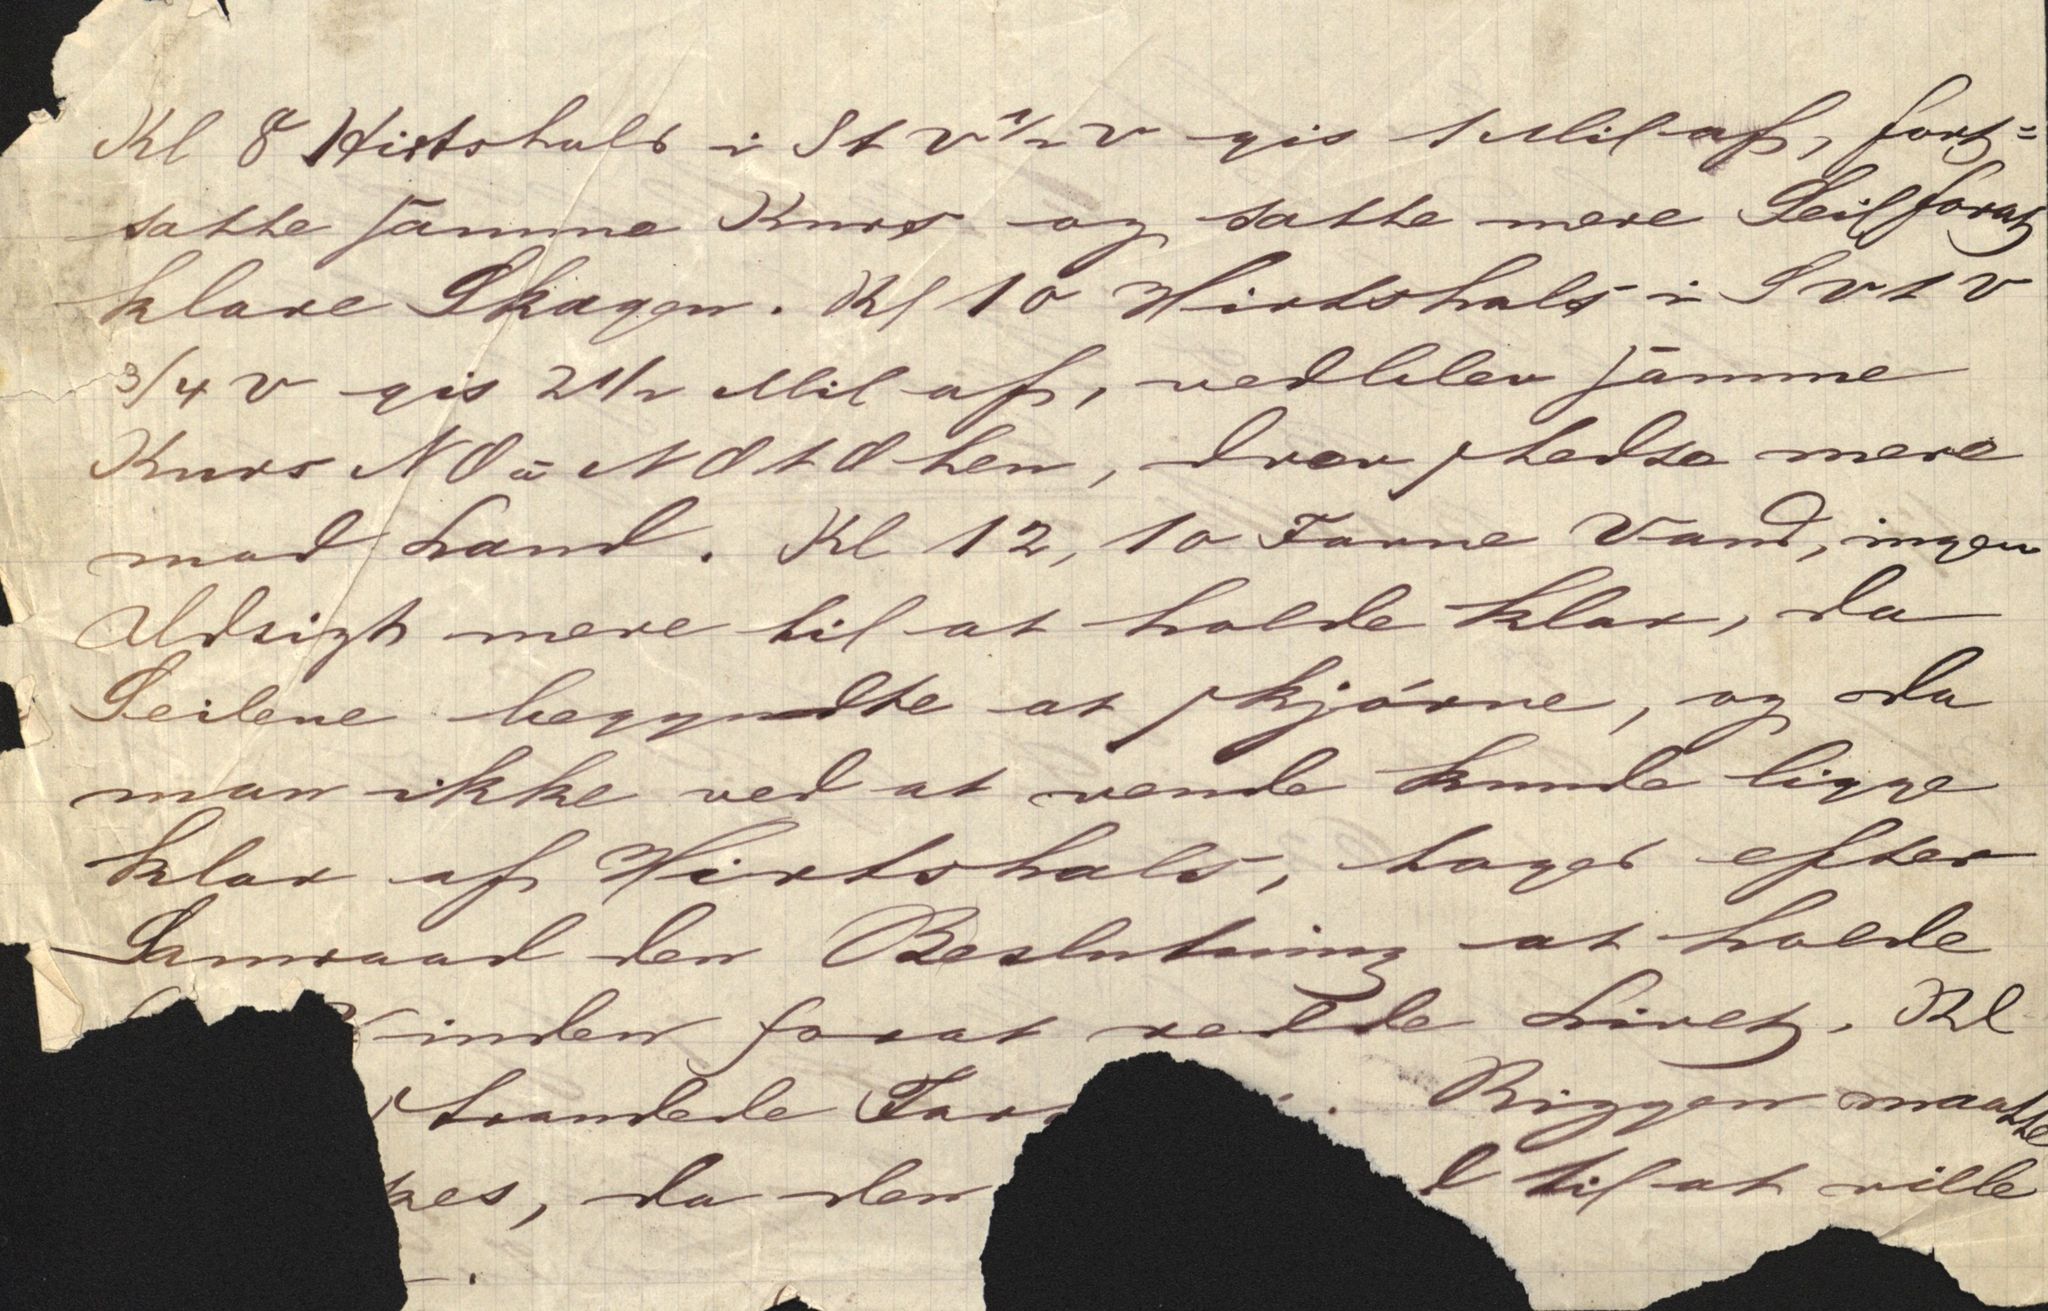 Kl 8 Hirtshals i S t V 1/2 V gis 1 Mil af, fort=
satte samme Kurs og satte mere Seil forat
klare Skagen. Kl 10 Hirtshals i S V t V
3/4 V gis 2 1/2 Mil af, vedblev samme
Kurs NO a NO t O hen, drev stedse mere
mod Land. Kl 12, 10 Favne Vand, ingen
Udsigt mere til at holde klar, da
Seilene begyndte at skjørne, og da
man ikke ved at vende kunde ligge
klar af Hirtshals, toges efter
Samraad den Beslutning at holde
Vinden forat redde Livet. Kl
strandede Riggen maatte
kes, da den d til at ville